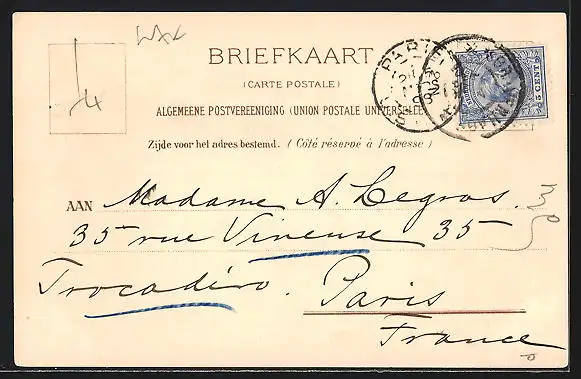 BRIEFKAART
(CARTE POSTALE)
ALGEMEENE POSTVEREENIGING (UNION POSTALE UNIVERSELLE)
Zijde voor het adres bestemd. (Côté réservé à l'adresse)
AAN Madame A. Legros.
35 rue Vineuse 35
Trocadéro. Paris
France
5 CENT
PARIS